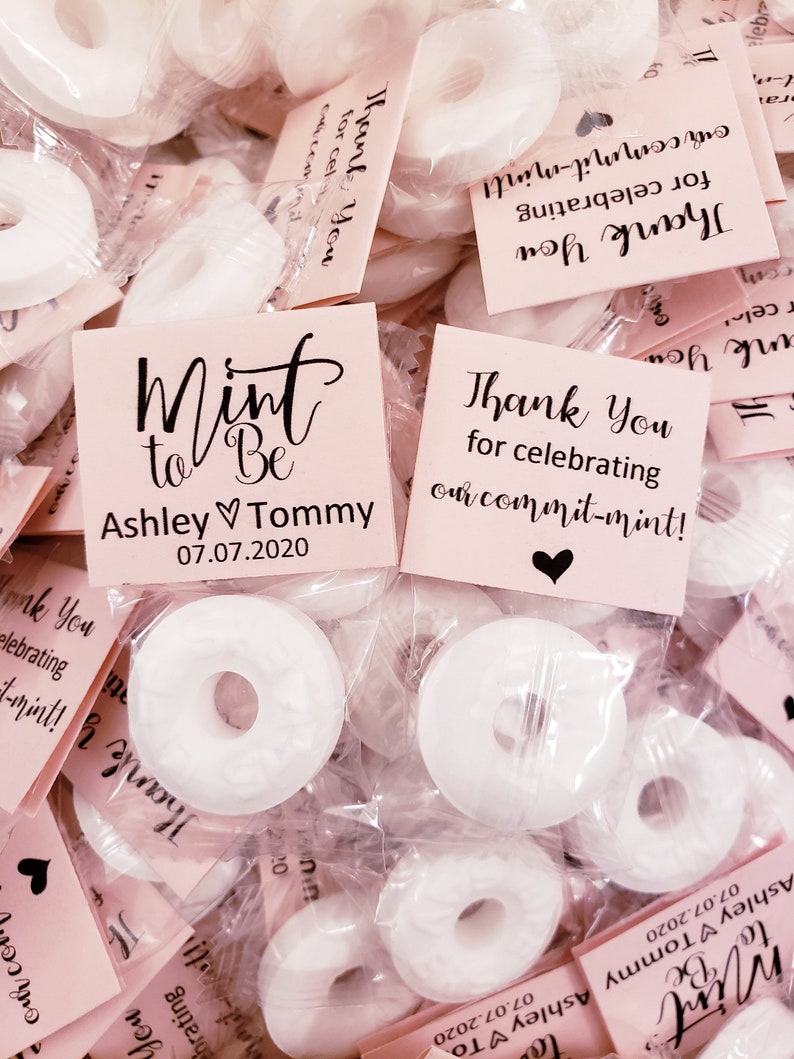 Thank You
for celebrating
our commit-mint!
Thank You
for celeb
our commit
Mint
to Be
Ashley ♡ Tommy
07.07.2020
Thank You
for celebrating
our commit-mint!
Thank You
celebrating
commit-mint!
Thank
Mint
to Be
Ashley ♡ Tommy
07.07.2020
Ashley ♡
07.07.2020